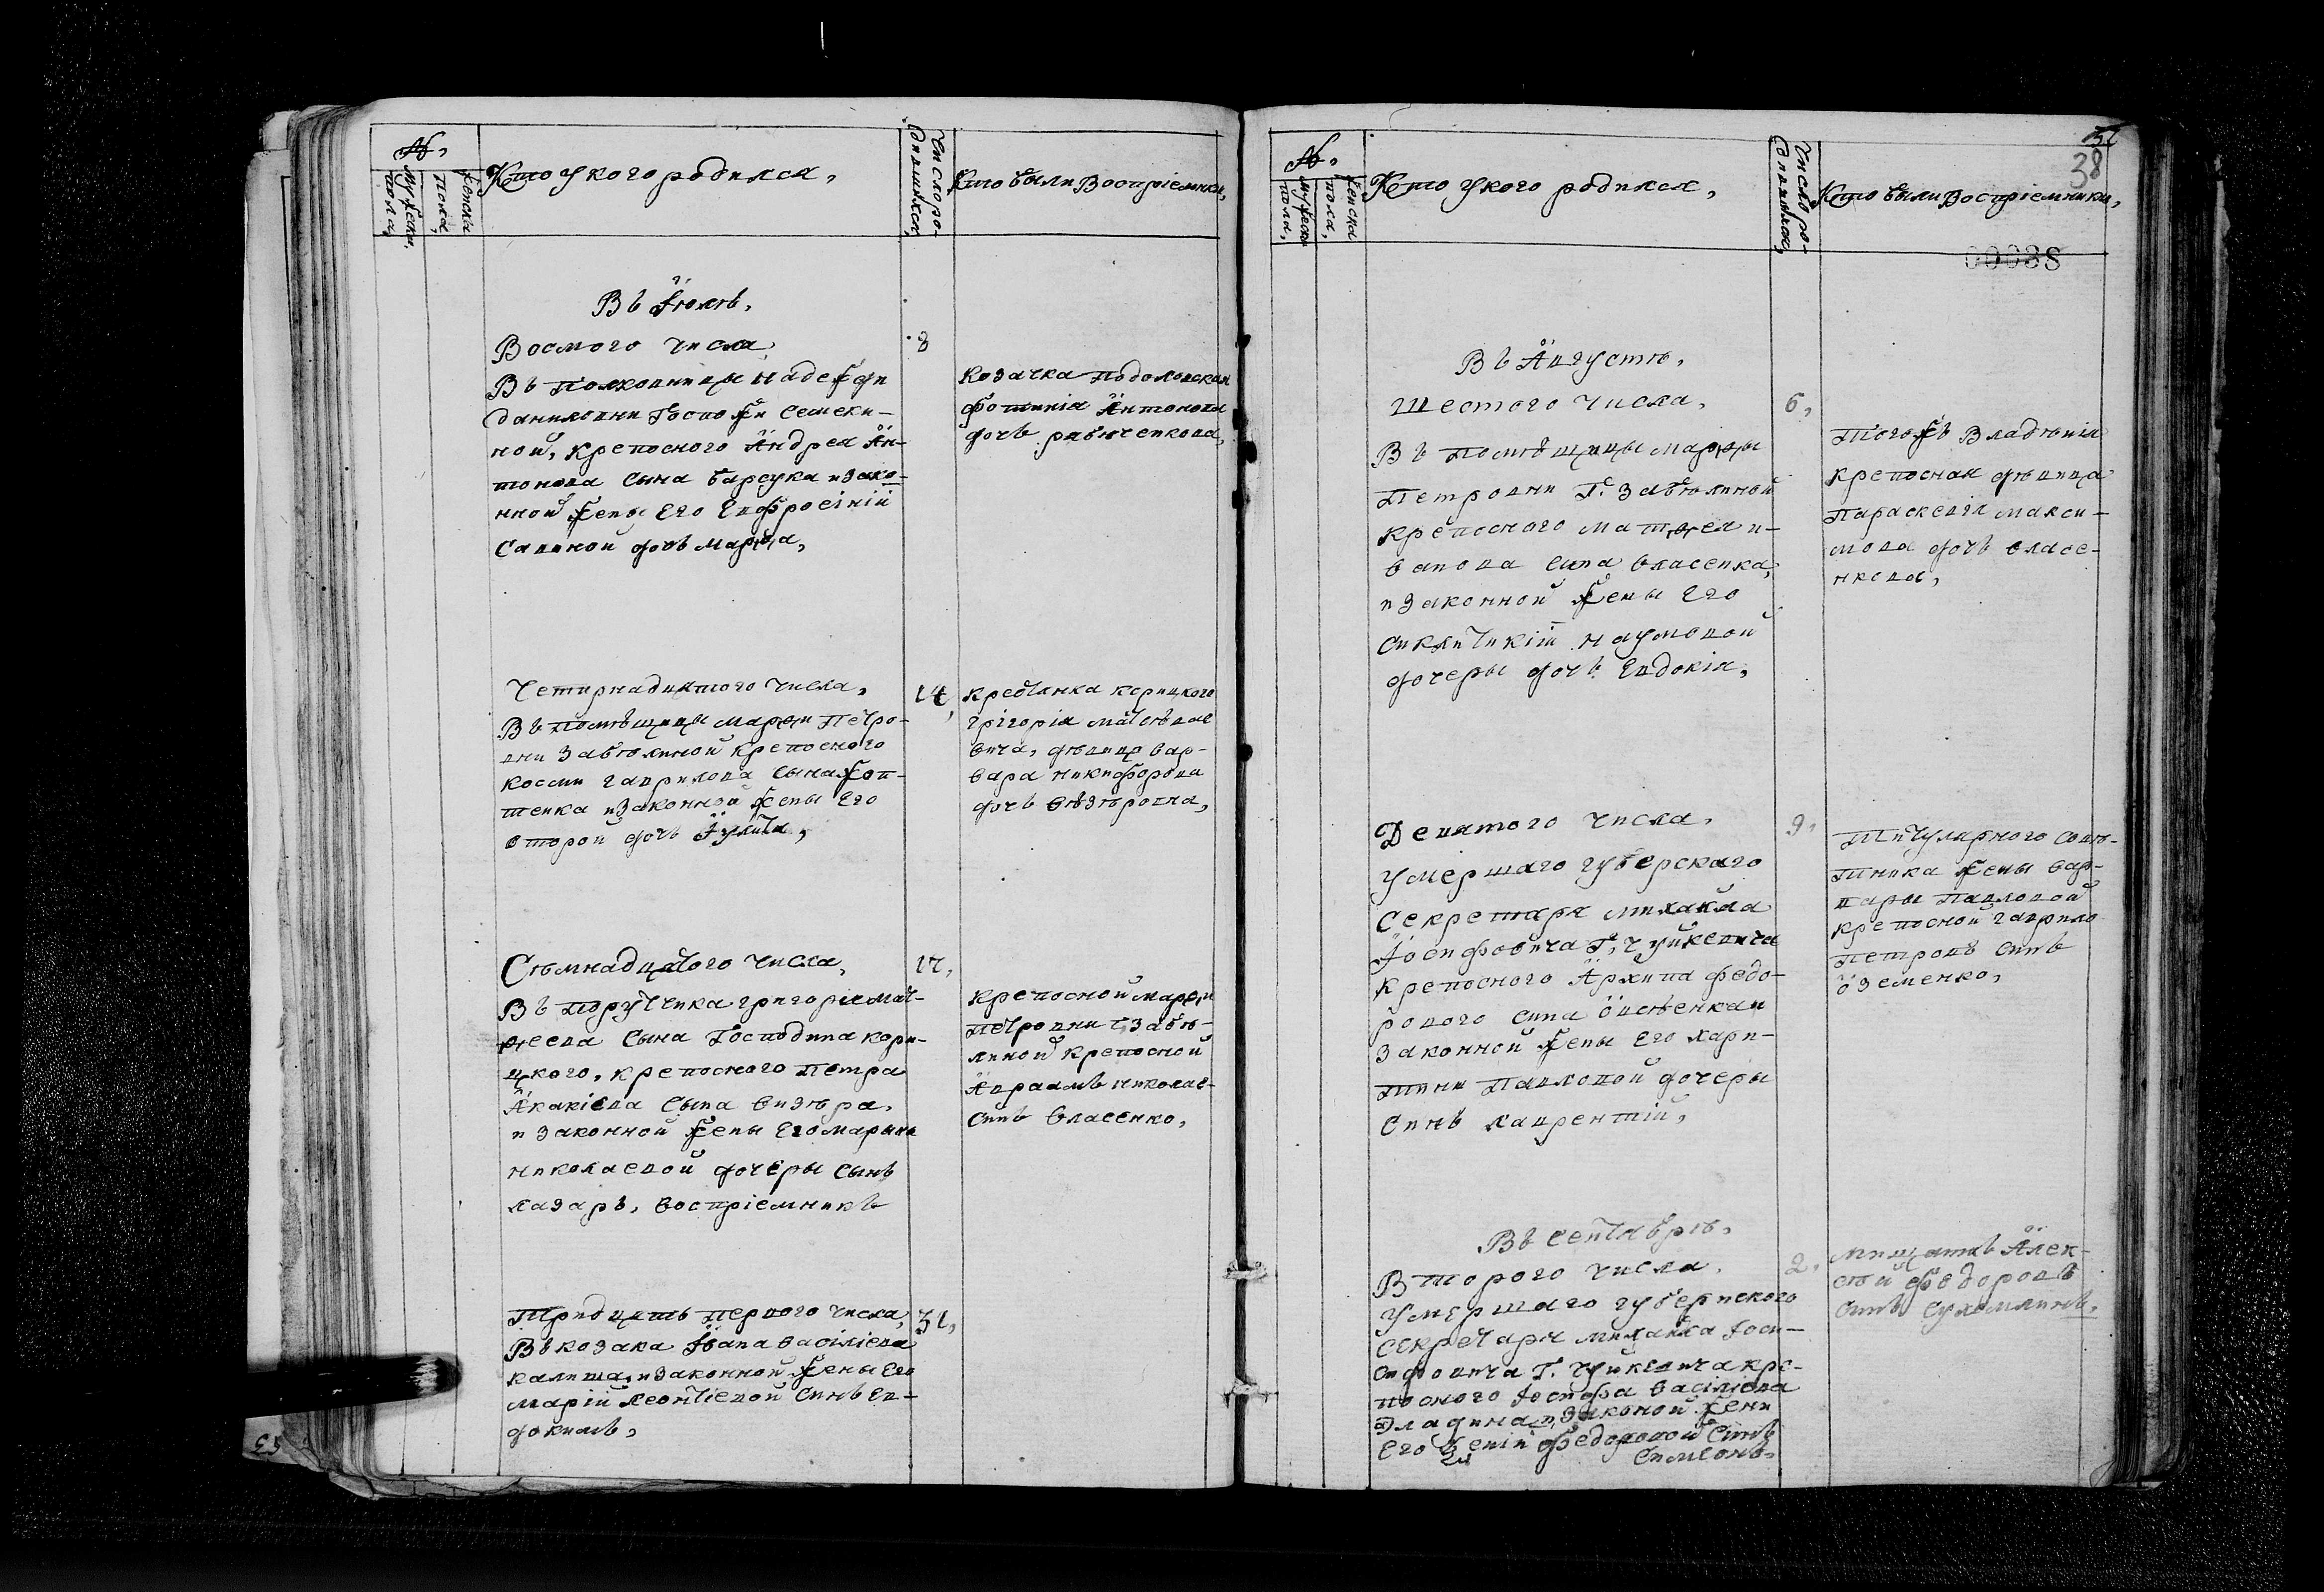 №.
мужеска
пола,
женска
пола,
Кто у кого родился,
Число ро-
дившихся,
Кто были Восприемники,
Въ Іюлѣ,
Восмого числа
8
Въ Полковницы Надежди
Даниловни Госпожи Семеки-
ной, крепосного Андрея Ан-
тонова сына Барсука и зако-
нной жены его Евфросініи
Савиной дочь Марѳа,
Козачка Подоловская
Фотинія Антонова
дочь Рябченкова,
Четирнадцятого числа,
14,
Въ Помѣщицы Марѳи Петро-
вни Забѣлиной крепосного
Косми Гаврилова сына Коп-
тенка и законной жены его
второй дочь Іулита,
Крестянка Корицкого
Григорія Матѳѣвае
вича, дѣвица Вар-
вара Никифорова
дочь Визѣровна,
Сѣмнадцятого числа,
17,
Въ Поручика Григорія Мат-
ѳеева сына Господина Кори-
цкого, крепосного Петра
Акакіева сына Визѣра,
и законной жены его Марыны
Николаевой дочеры сынъ
Лазарь, восприемникъ
Крепосной Марѳи
Петровни Забѣ-
линой крепосной
Авраамъ Николае-
синъ Власенко,
Тридцять первого числа,
31,
В козака Івана Васіліева
Калиша, и законной жены его
Маріи Леонтіевой синъ Ев-
докимъ,
№.
мужеска
пола,
женска
пола,
Кто у кого родился,
Число ро-
дившихся,
Кто были Восприемники,
38
00038
Въ Августѣ,
Шестого числа,
6,
Въ Помѣщицы Марѳы
Петровни Г. Забѣлиной
крепосного Матѳея И-
ванова сина Власенка,
и законной жены его
Сиклитикіи Наумовой
дочеры дочь Евдокія,
Тогожъ владѣнія
крепосная дѣвица
Параскевія Макси-
мова дочь Власе-
нкова,
Девятого числа,
9,
Умершаго губерского
Секретаря Михаила
Іосифовича Г. Чуйкевича
крепосного Архипа Федо-
рового сина Овсѣенка и
законной жены его Хари-
тини Павловой дочеры
синъ Лаврентій,
Титулярного Совѣ-
тника жены Вар-
вары Павловой
крепосной Гаврило
Петровъ синъ
Оземенко,
Въ Сентябрѣ,
Второго числа,
2,
Умершаго губерниского
Секретаря Михайла Іоси-
сифовича Г. Чуйкевича кре-
посного Іосифа Васіліева
и законой жени
Его Федоровой синъ
Симеонъ,
Мищанинъ Алек-
сѣй Федоровъ
синъ Сухомлинъ,